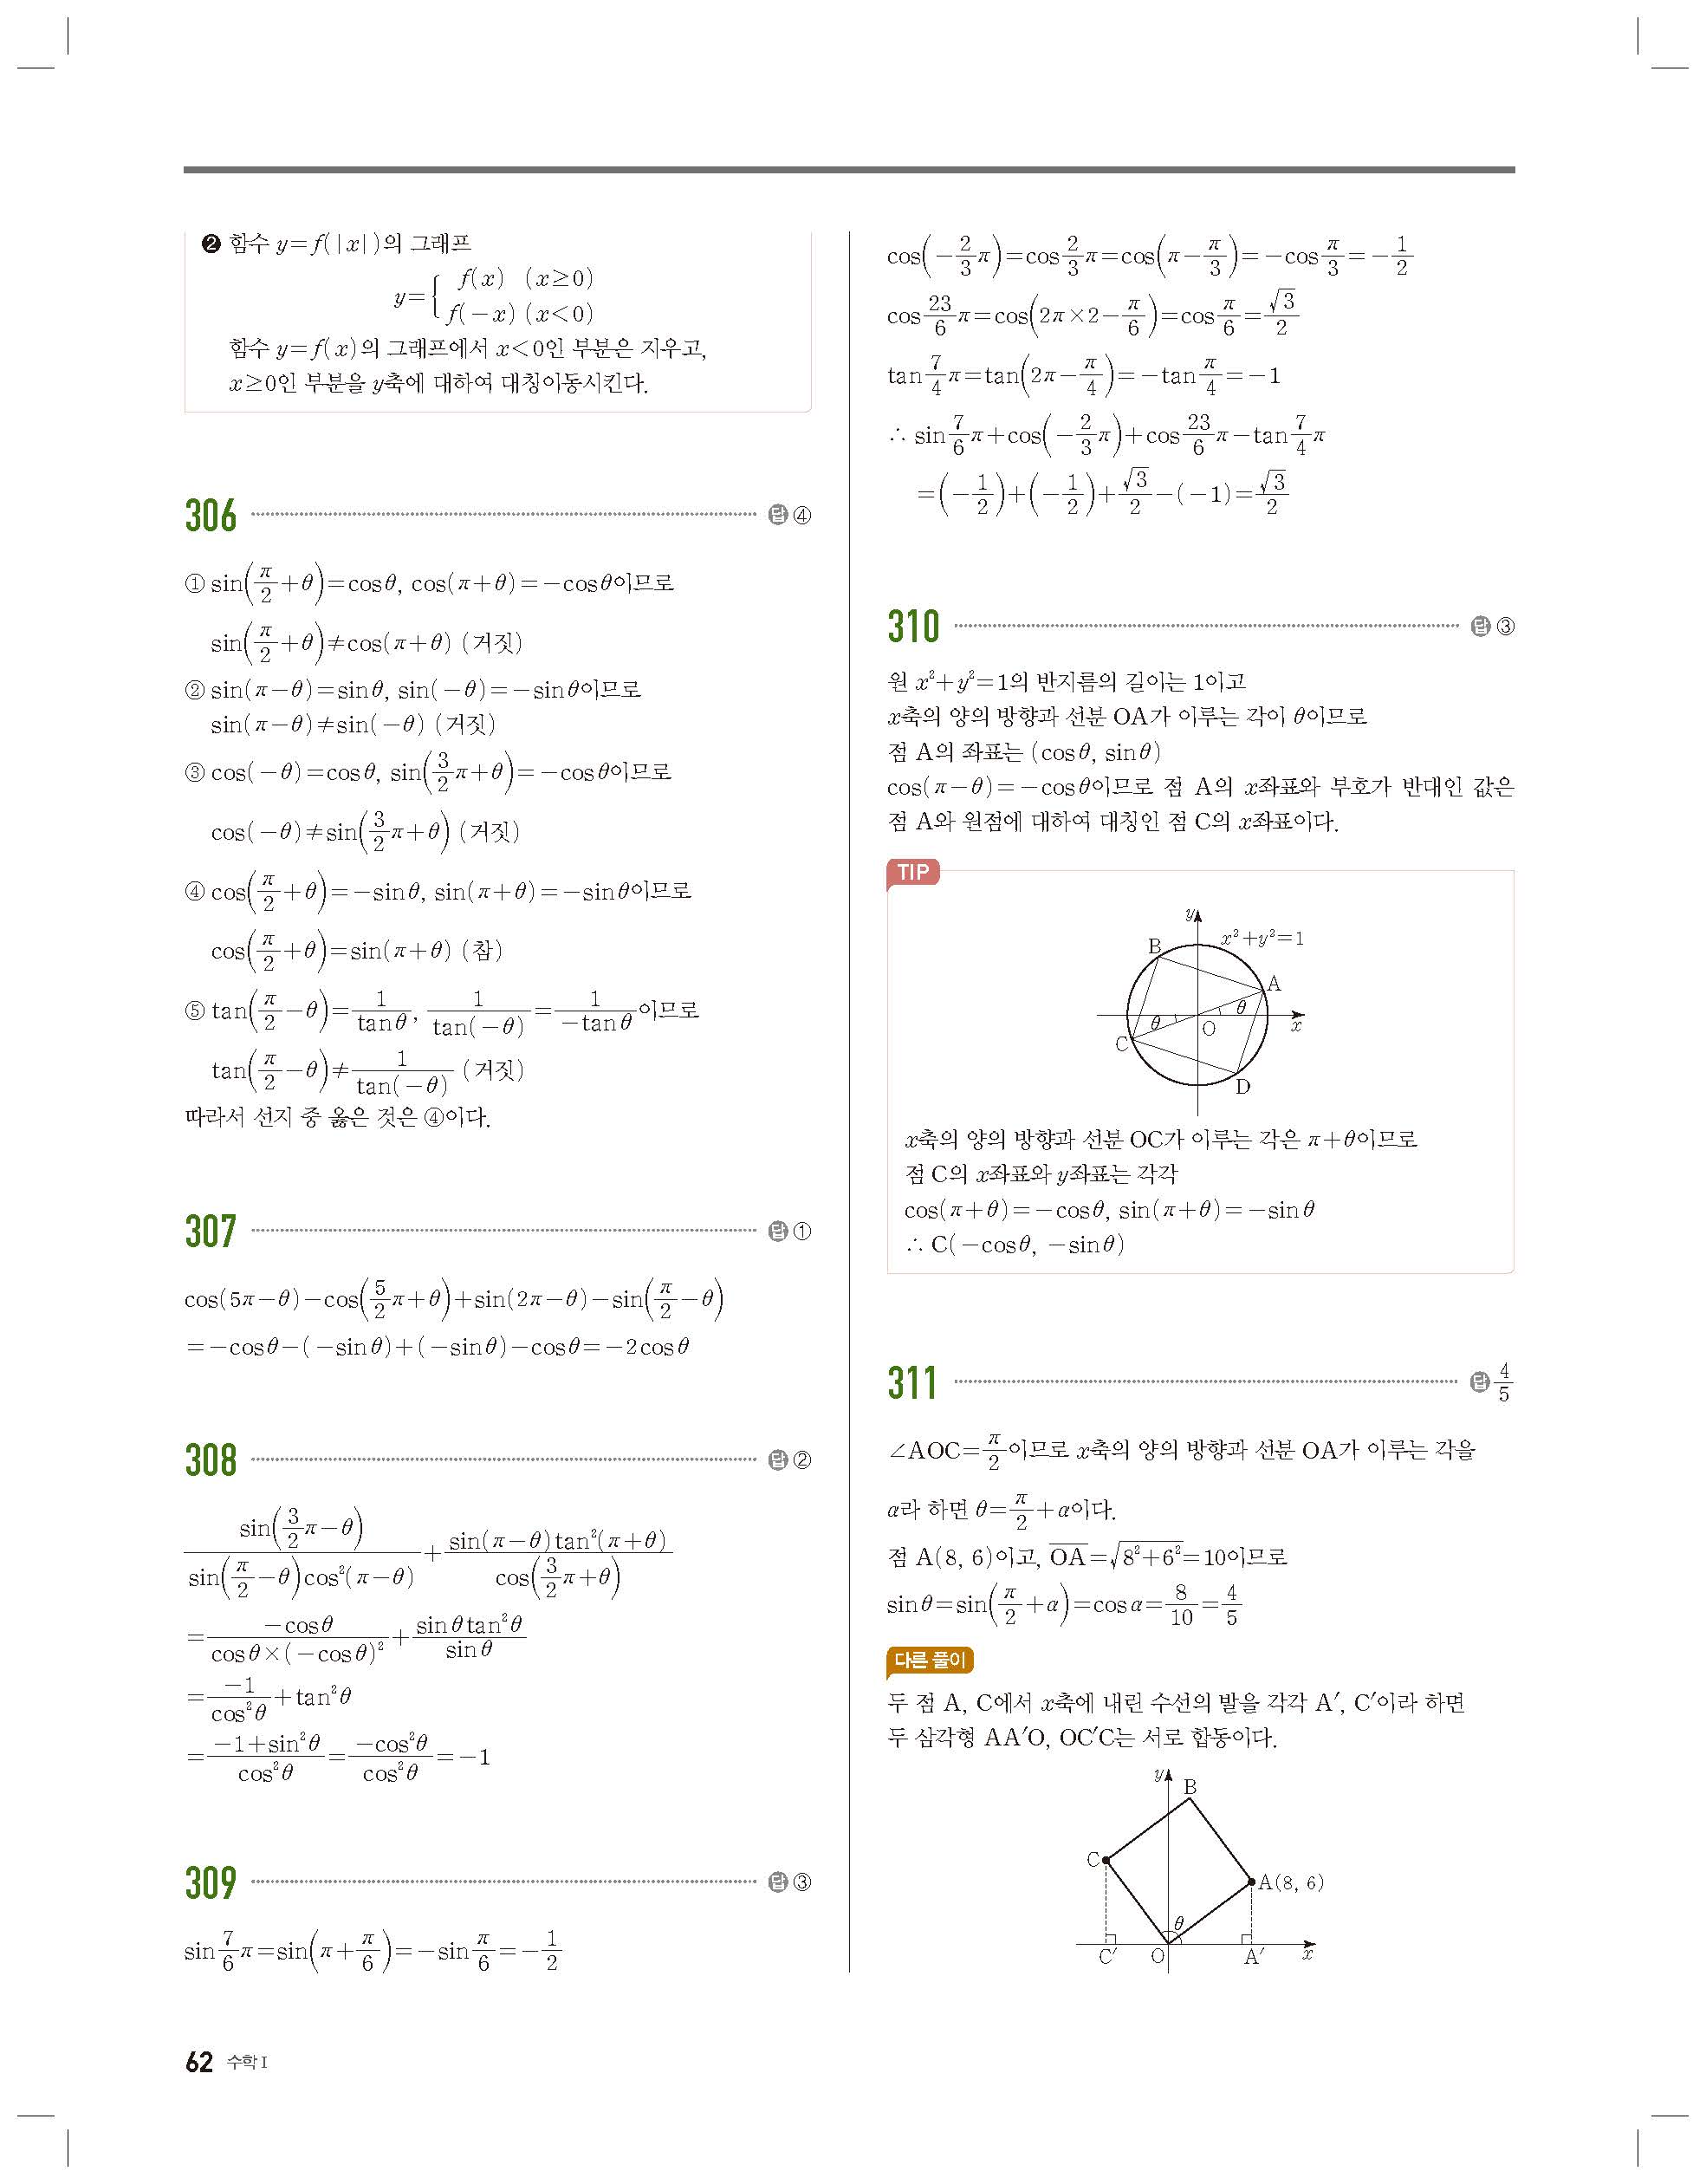 ❷ 함수 y=f(|x|)의 그래프
y={ f(x) (x≥0)
f(-x) (x<0)
함수 y=f(x)의 그래프에서 x<0인 부분은 지우고,
x≥0인 부분을 y축에 대하여 대칭이동시킨다.
306 답 ④
① sin(π/2+θ)=cosθ, cos(π+θ)=-cosθ이므로
sin(π/2+θ)≠cos(π+θ) (거짓)
② sin(π-θ)=sinθ, sin(-θ)=-sinθ이므로
sin(π-θ)≠sin(-θ) (거짓)
③ cos(-θ)=cosθ, sin(3/2π+θ)=-cosθ이므로
cos(-θ)≠sin(3/2π+θ) (거짓)
④ cos(π/2+θ)=-sinθ, sin(π+θ)=-sinθ이므로
cos(π/2+θ)=sin(π+θ) (참)
⑤ tan(π/2-θ)=1/tanθ, 1/tan(-θ)=1/-tanθ이므로
tan(π/2-θ)≠1/tan(-θ) (거짓)
따라서 선지 중 옳은 것은 ④이다.
307 답 ①
cos(5π-θ)-cos(5/2π+θ)+sin(2π-θ)-sin(π/2-θ)
=-cosθ-(-sinθ)+(-sinθ)-cosθ=-2cosθ
308 답 ②
sin(3/2π-θ)/sin(π/2-θ)cos²(π-θ)+sin(π-θ)tan²(π+θ)/cos(3/2π+θ)
=-cosθ/cosθ×(-cosθ)²+sinθtan²θ/sinθ
=-1/cos²θ+tan²θ
=-1+sin²θ/cos²θ=-cos²θ/cos²θ=-1
309 답 ③
sin7/6π=sin(π+π/6)=-sinπ/6=-1/2
cos(-2/3π)=cos2/3π=cos(π-π/3)=-cosπ/3=-1/2
cos23/6π=cos(2π×2-π/6)=cosπ/6=√3/2
tan7/4π=tan(2π-π/4)=-tanπ/4=-1
∴ sin7/6π+cos(-2/3π)+cos23/6π-tan7/4π
=(-1/2)+(-1/2)+√3/2-(-1)=√3/2
310 답 ③
원 x²+y²=1의 반지름의 길이는 1이고
x축의 양의 방향과 선분 OA가 이루는 각이 θ이므로
점 A의 좌표는 (cosθ, sinθ)
cos(π-θ)=-cosθ이므로 점 A의 x좌표와 부호가 반대인 값은
점 A와 원점에 대하여 대칭인 점 C의 x좌표이다.
TIP
y
x²+y²=1
B
A
θ
θ
O
x
C
D
x축의 양의 방향과 선분 OC가 이루는 각은 π+θ이므로
점 C의 x좌표와 y좌표는 각각
cos(π+θ)=-cosθ, sin(π+θ)=-sinθ
∴ C(-cosθ, -sinθ)
311 답 4/5
∠AOC=π/2이므로 x축의 양의 방향과 선분 OA가 이루는 각을
α라 하면 θ=π/2+α이다.
점 A(8, 6)이고, OA=√8²+6²=10이므로
sinθ=sin(π/2+α)=cosα=8/10=4/5
다른 풀이
두 점 A, C에서 x축에 내린 수선의 발을 각각 A′, C′이라 하면
두 삼각형 AA′O, OC′C는 서로 합동이다.
y
B
C
A(8, 6)
θ
C′
O
A′
x
62 수학 I